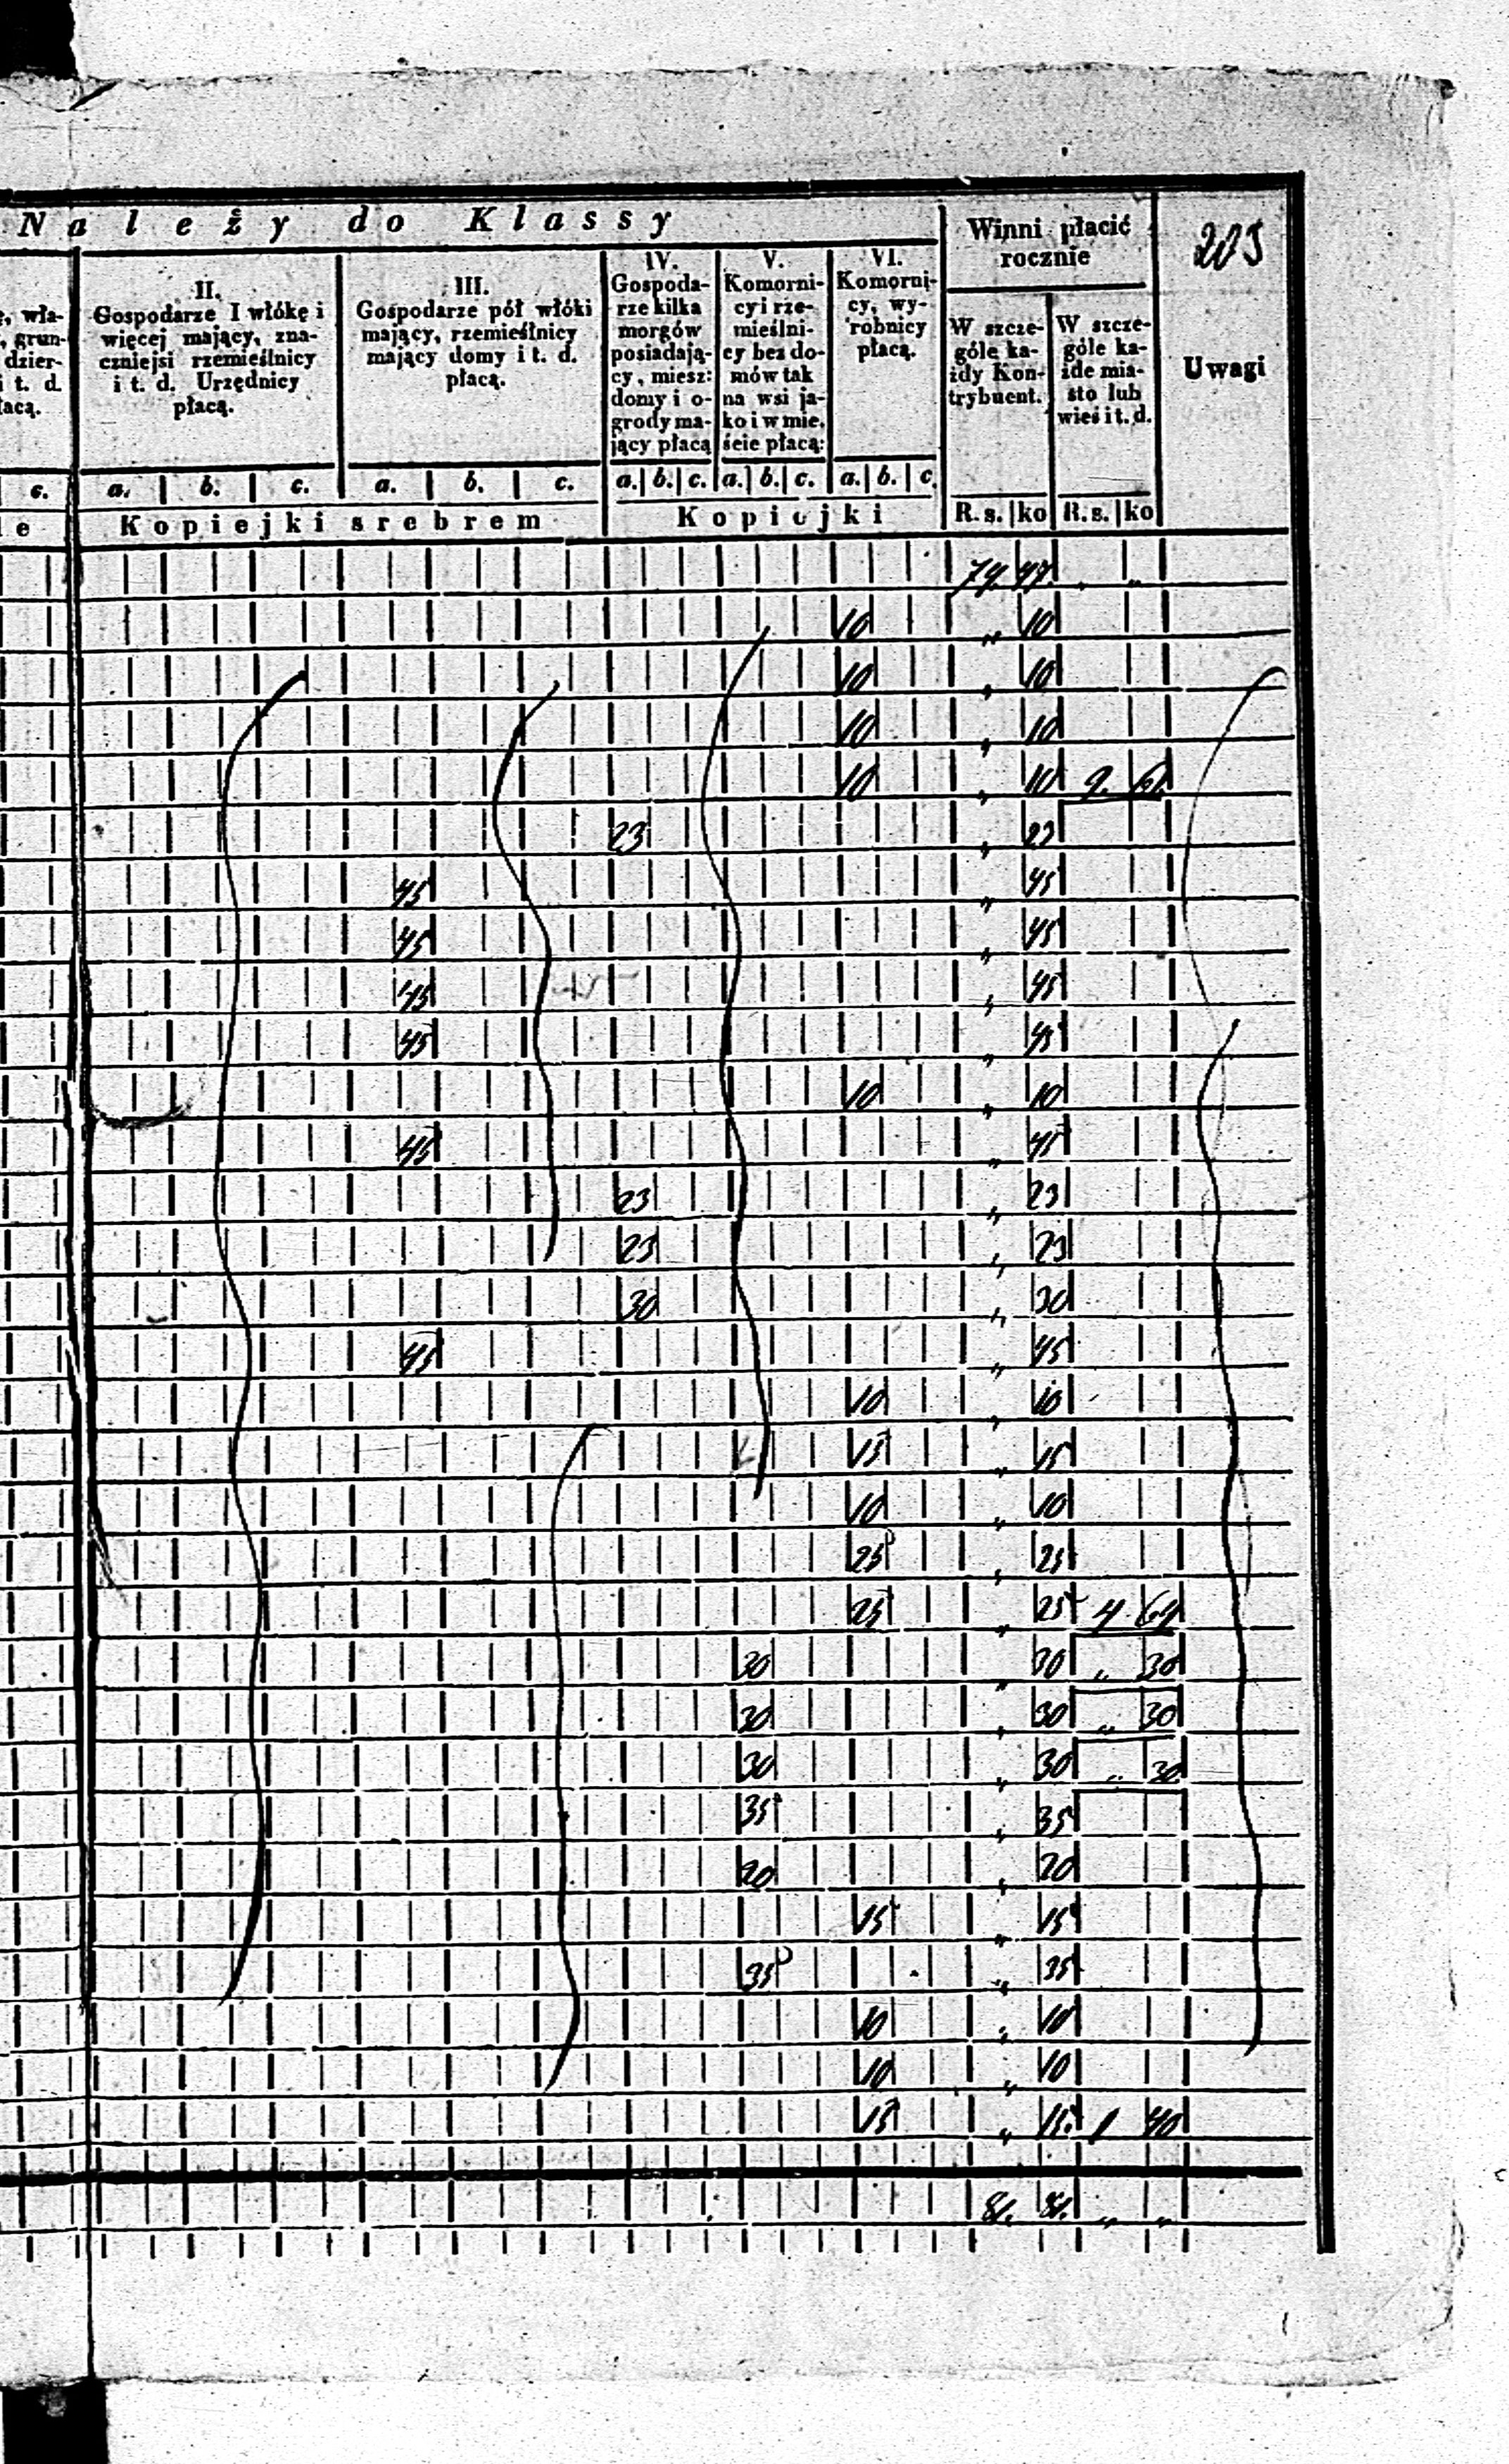 Należy do Klassy
Winni płacić
rocznie
203
ę, wła-
, grun-
dzier-
i t. d.
łacą.
II.
Gospodarze I włókę i
więcej mający, zna-
czniejsi rzemieślnicy
i t. d. Urzędnicy
płacą.
III.
Gospodarze pół włóki
mający, rzemieślnicy
mający domy i t. d.
płacą.
IV.
Gospoda-
rze kilka
morgów
posiadają-
cy, miesz:
domy i o-
grody ma-
jący płacą
V.
Komorni-
cy i rze-
mieślni-
cy bez do-
mów tak
na wsi ja-
ko i w mie.
ście płacą:
VI.
Komorni-
cy, wy-
robnicy
płacą.
W szcze-
góle ka-
żdy Kon-
trybuent.
W szcze-
góle ka-
żde mia-
sto lub
wieś i t. d.
Uwagi
c. a. b. c. a. b. c. a. b. c. a. b. c. a. b. c.
e Kopiejki srebrem Kopiejki R. s. ko R. s. ko
10 „ 10
10 „ 10
10 „ 10
10 „ 10 9.
23 „ 23
45 „ 45
45 „ 45
45 „ 45
45 „ 45
10 „ 10
45 „ 45
23 „ 23
23 „ 23
30 „ 30
45 „ 45
10 „ 10
15 „ 15
10 „ 10
25 „ 25
25 „ 25 4 64
30 „ 30 „ 30
30 „ 30 „ 30
30 „ 30 „ 30
35 „ 35
20 „ 20
15 „ 15
35 „ 35
10 „ 10
10 „ 10
15 „ 15 1 40
„ „